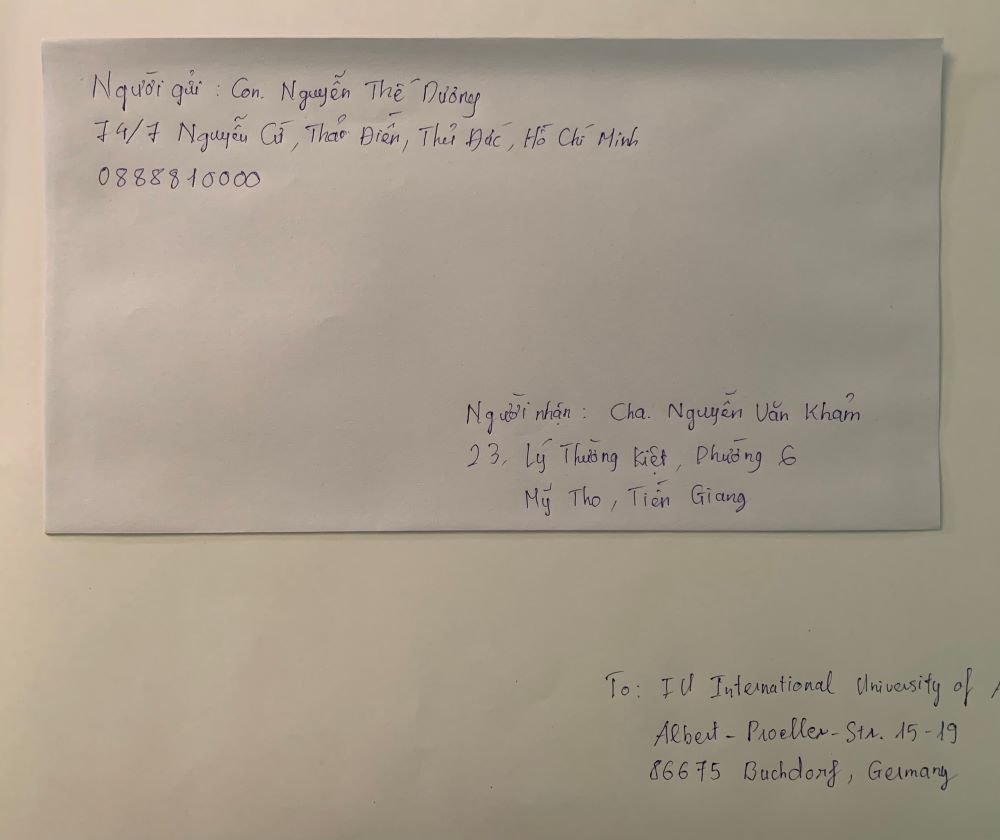 Người gửi : Con. Nguyễn Thế Dương
74/7 Nguyễn Cừ, Thảo Điền, Thủ Đức, Hồ Chí Minh
0888810000
Người nhận : Cha. Nguyễn Văn Khảm
23, Lý Thường Kiệt, Phường 6
Mỹ Tho, Tiền Giang
To: IU International University of
Albert - Proeller - Str. 15 - 19
86675 Buchdorf, Germany